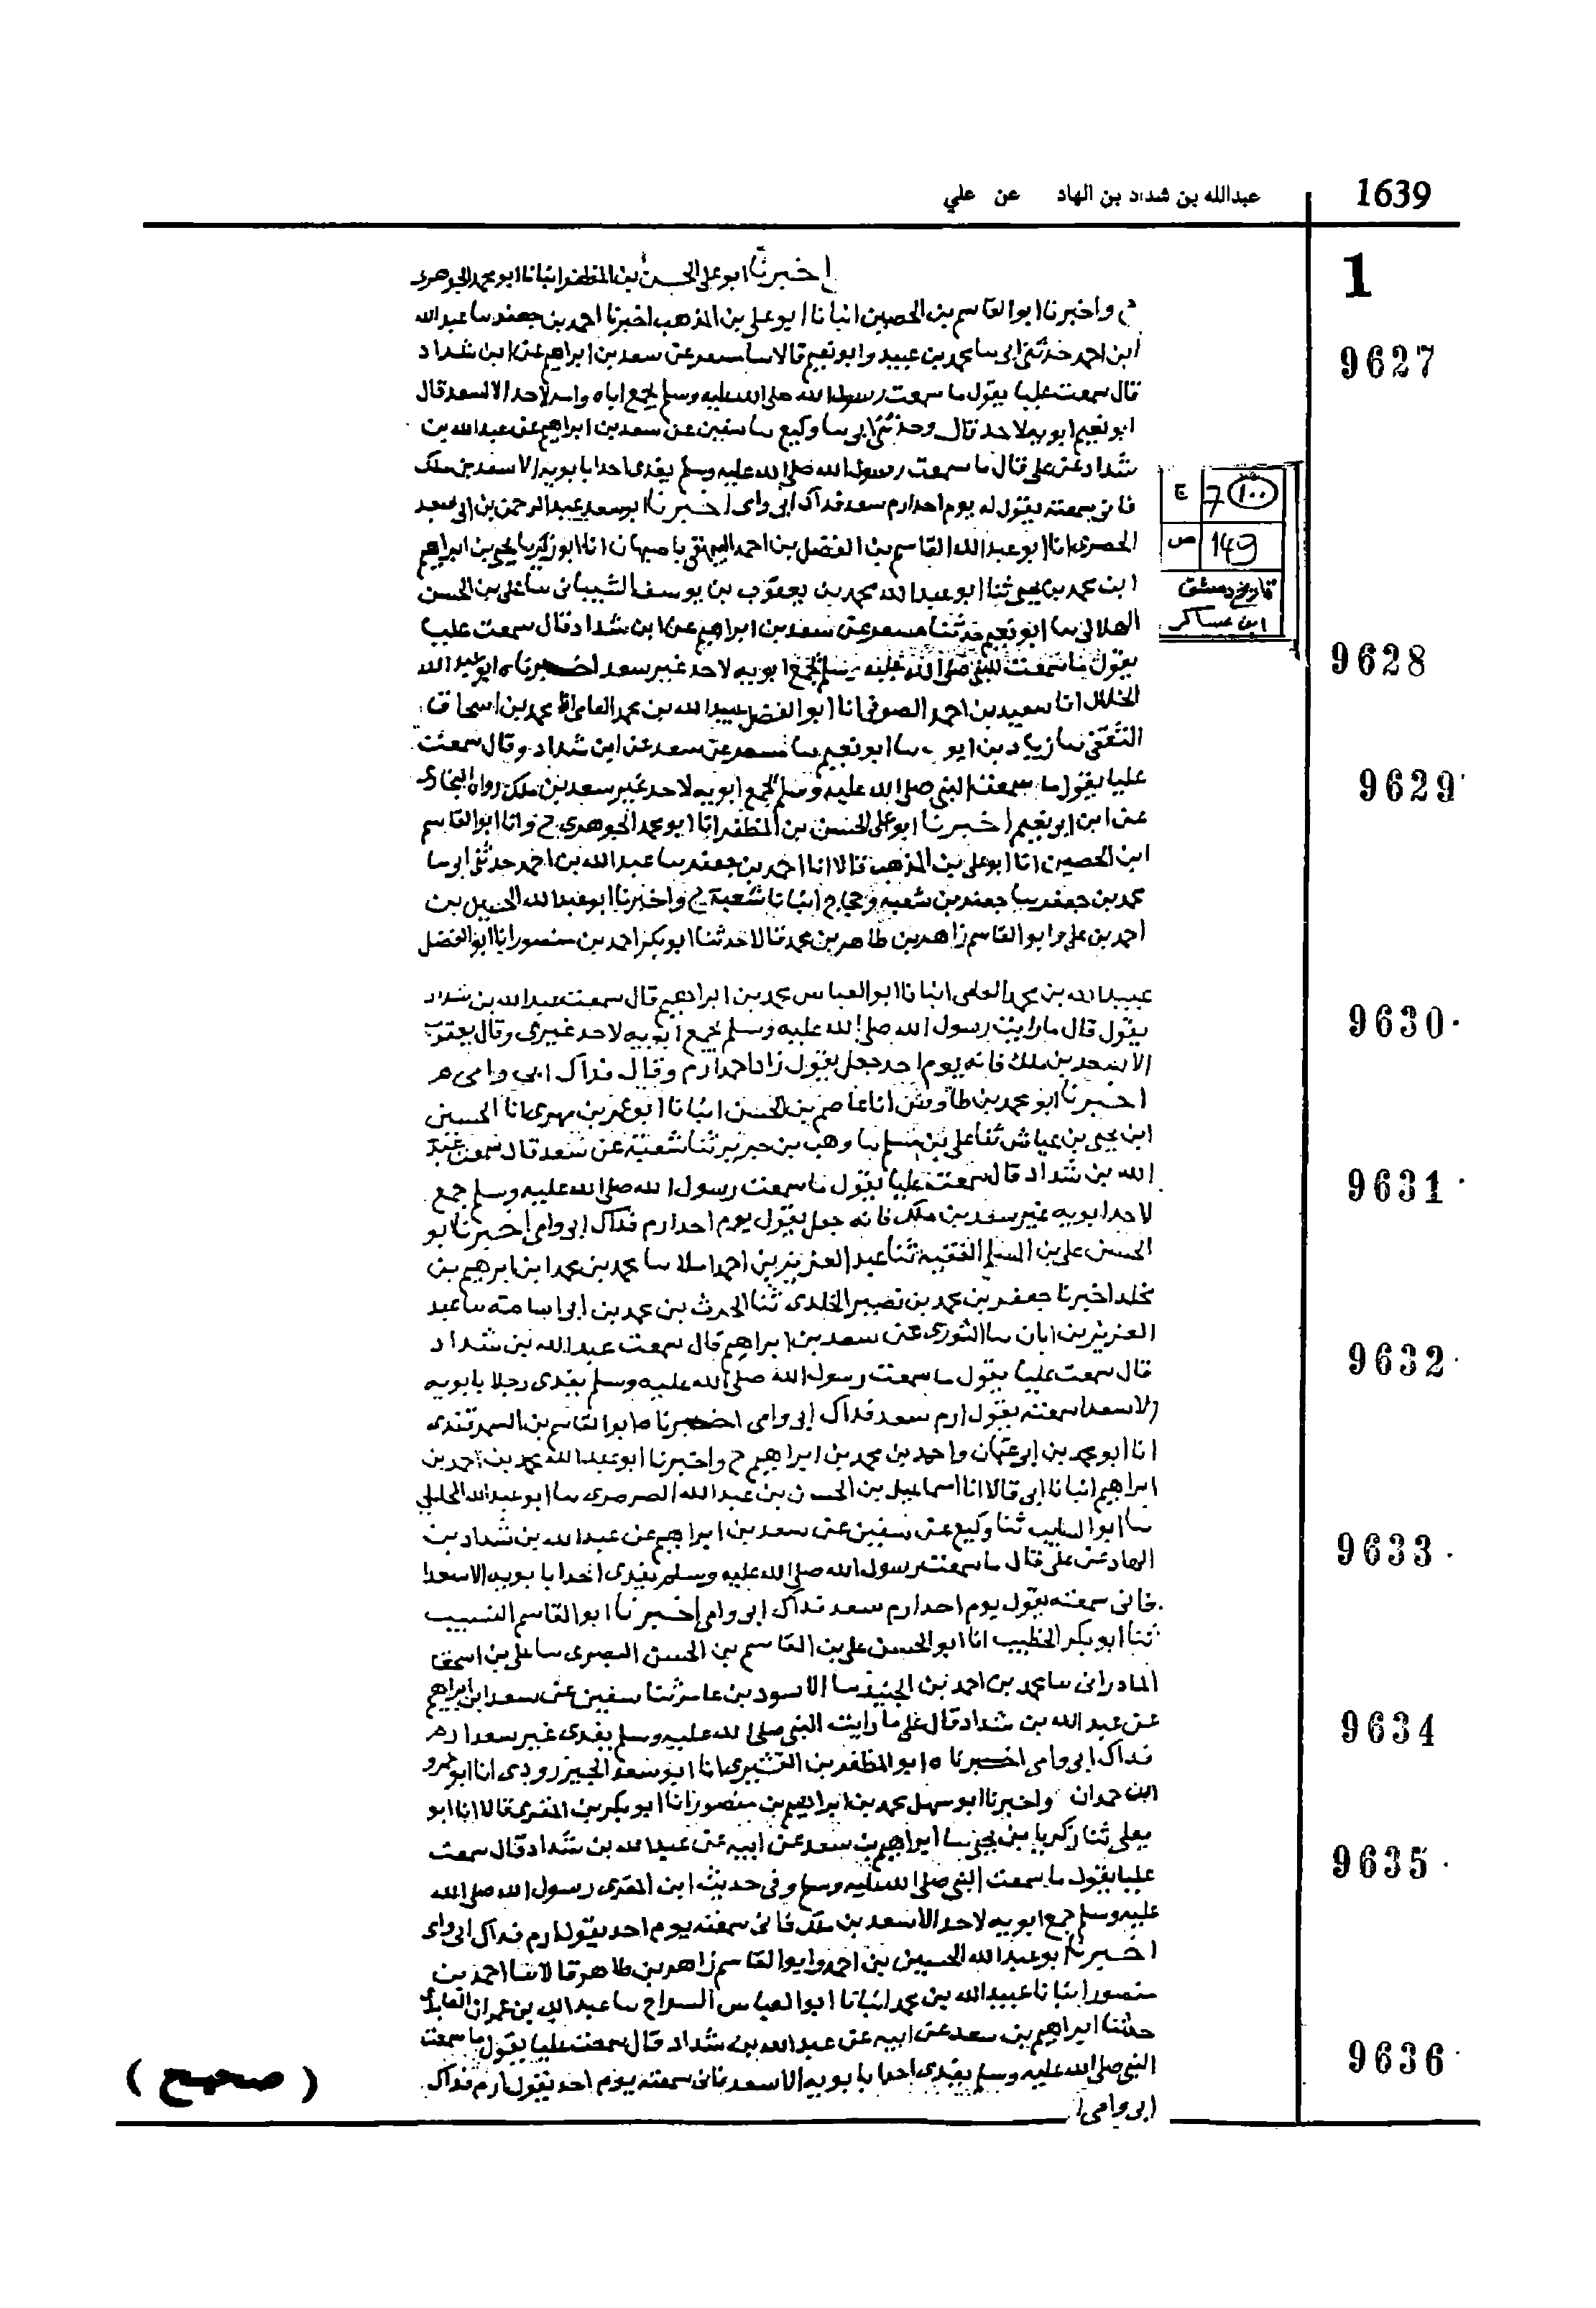 1639
عبدالله بن شداد بن الهاد عن علي
1
اخبرنا ابو علي الحسن بن المظفر انبانا ابو محمد الجوهري
ح واخبرنا ابوالقاسم بن الحصين انبانا ابو علي بن المذهب اخبرنا احمد بن جعفر سا عبدالله
9627
ابن احمد حدثني ابي سا محمد بن عبيد وابو نعيم قالا سا مسعر عن سعد بن ابراهيم عن ابن شداد
قال سمعت عليا يقول ما سمعت رسول الله صلى الله عليه وسلم يجمع اباه وامه لاحد الا لسعد قال
ابو نعيم ابويه لاحد قال وحدثني ابي سا وكيع سا سفين عن سعد بن ابراهيم عن عبدالله بن
شداد عن علي قال ما سمعت رسول الله صلى الله عليه وسلم يفدي احدا بابويه الا سعد بن ملك
فاني سمعته يقول له يوم احد ارم سعد فداك ابي وامي اخبرنا ابو سعد عبدالرحمن بن ابي سعد
ج 7 (١٠٠)
الحصري انا ابو عبدالله القاسم بن الفضل بن احمد باصبهان انا ابو زكريا يحيى بن ابراهيم
ص 149
ابن محمد بن يحيى ثنا ابو عبدالله محمد بن يعقوب بن يوسف الشيباني سا علي بن الحسن
تاريخ دمشق
ابن عساكر
الهلالي سا ابو نعيم حدثنا مسعر عن سعد بن ابراهيم عن ابن شداد قال سمعت عليا
9628
يقول ما سمعت النبي صلى الله عليه وسلم يجمع ابويه لاحد غير سعد اخبرناه ابو عبد الله
الخلال انا سعيد بن احمد الصوفي انا ابو الفضل عبيدالله بن محمد انا محمد بن اسحاق
الثقفي سا زياد بن ايوب سا ابو نعيم سا مسعر عن سعد عن ابن شداد وقال سمعت
9629
عليا يقول ما سمعت النبي صلى الله عليه وسلم يجمع ابويه لاحد غير سعد بن ملك رواه البخاري
عن ابي نعيم اخبرنا ابو علي الحسن بن المظفر انا ابو محمد الجوهري ح وانا ابو القاسم
ابن الحصين انا ابو علي بن المذهب قالا انا احمد بن جعفر سا عبدالله بن احمد حدثني ابي سا
محمد بن جعفر سا جعفر بن شعبه وحجاج انبانا شعبة ح واخبرنا ابو عبدالله الحسين بن
احمد بن علي وابو القاسم زاهد بن طاهر بن محمد قالا حدثنا ابو بكر احمد بن منصور انا ابو الفضل
عبيدالله بن محمد انبانا ابو العباس محمد بن ابراهيم قال سمعت عبدالله بن شداد
9630
يقول قال ما رايت رسول الله صلى الله عليه وسلم يجمع ابويه لاحد غيري وقال يعقوب
الا سعد بن ملك فانه يوم احد جعل يقول وقال فداك ابي وامي
اخبرنا ابو محمد بن طاوس انا عاصم بن الحسن انبانا ابو عمر بن مهدي انا الحسين
ابن يحيى بن عياش ثنا علي بن مسلم سا وهب بن جرير ثنا شعبة عن سعد قال سمعت عبد
9631
الله بن شداد قال سمعت عليا يقول ما سمعت رسول الله صلى الله عليه وسلم جمع
لاحد ابويه غير سعد بن ملك فانه جعل يقول يوم احد ارم فداك ابي وامي اخبرنا ابو
الحسن علي بن المسلم الفقيه ثنا عبدالعزيز بن احمد املا سا محمد بن محمد ابن ابراهيم بن
مخلد اخبرنا جعفر بن محمد بن نصير الخلدي ثنا الحرث بن محمد بن ابي اسامة سا عبد
العزيز بن ابان سا الثوري عن سعد بن ابراهيم قال سمعت عبدالله بن شداد
9632
قال سمعت عليا يقول ما سمعت رسول الله صلى الله عليه وسلم يفدي رجلا بابويه
الا سعدا سمعته يقول ارم سعد فداك ابي وامي اخبرناه ابو القاسم بن السمرقندي
انا ابو محمد بن ابي عثمان واحمد بن محمد بن ابراهيم ح واخبرنا ابو عبدالله محمد بن احمد بن
ابراهيم انبانا ابي قالا انا اسماعيل بن الحسن بن عبدالله الصرصري سا ابو عبدالله المحاملي
سا ابو السايب ثنا وكيع عن سفين عن سعد بن ابراهيم عن عبدالله بن شداد بن
9633
الهاد عن علي قال ما سمعت رسول الله صلى الله عليه وسلم يفدي احدا بابويه الا سعدا
فاني سمعته يقول يوم احد ارم سعد فداك ابي وامي اخبرنا ابو القاسم النسيب
ثنا ابو بكر الخطيب انا ابو الحسن علي بن القاسم بن الحسن البصري سا علي بن اسحق
المادراني سا محمد بن احمد بن الجنيد سا الاسود بن عامر ثنا سفين عن سعد ابن ابراهيم
9634
عن عبد الله بن شداد قال علي ما رايت النبي صلى الله عليه وسلم يفدي غير سعد ارم
فداك ابي وامي اخبرناه ابو المظفر بن القشيري انا ابو سعد الجنزرودي انا ابو عمرو
ابن حمدان واخبرنا ابو سهل محمد بن ابراهيم بن منصور انا ابو بكر بن المقري قالا انا ابو
يعلى ثنا زكريا بن يحيى سا ابراهيم بن سعد عن ابيه عن عبدالله بن شداد قال سمعت
9635
عليا يقول ما سمعت النبي صلى الله عليه وسلم وفي حديث ابن المقري رسول الله صلى الله
عليه وسلم جمع ابويه لاحد الا سعد بن ملك فاني سمعته يوم احد يقول ارم فداك ابي وامي
اخبرنا ابو عبدالله الحسين بن احمد وابو القاسم زاهر بن طاهر قالا انا احمد بن
منصور انبانا عبيدالله بن محمد انبانا ابو العباس السراج سا عبدالله بن عمران العابدي
حدثنا ابراهيم بن سعد عن ابيه عن عبدالله بن شداد قال سمعت عليا يقول ما سمعت
9636
النبي صلى الله عليه وسلم يفدي احدا بابويه الا سعد فاني سمعته يوم احد يقول ارم فداك
ابي وامي
( صحيح )